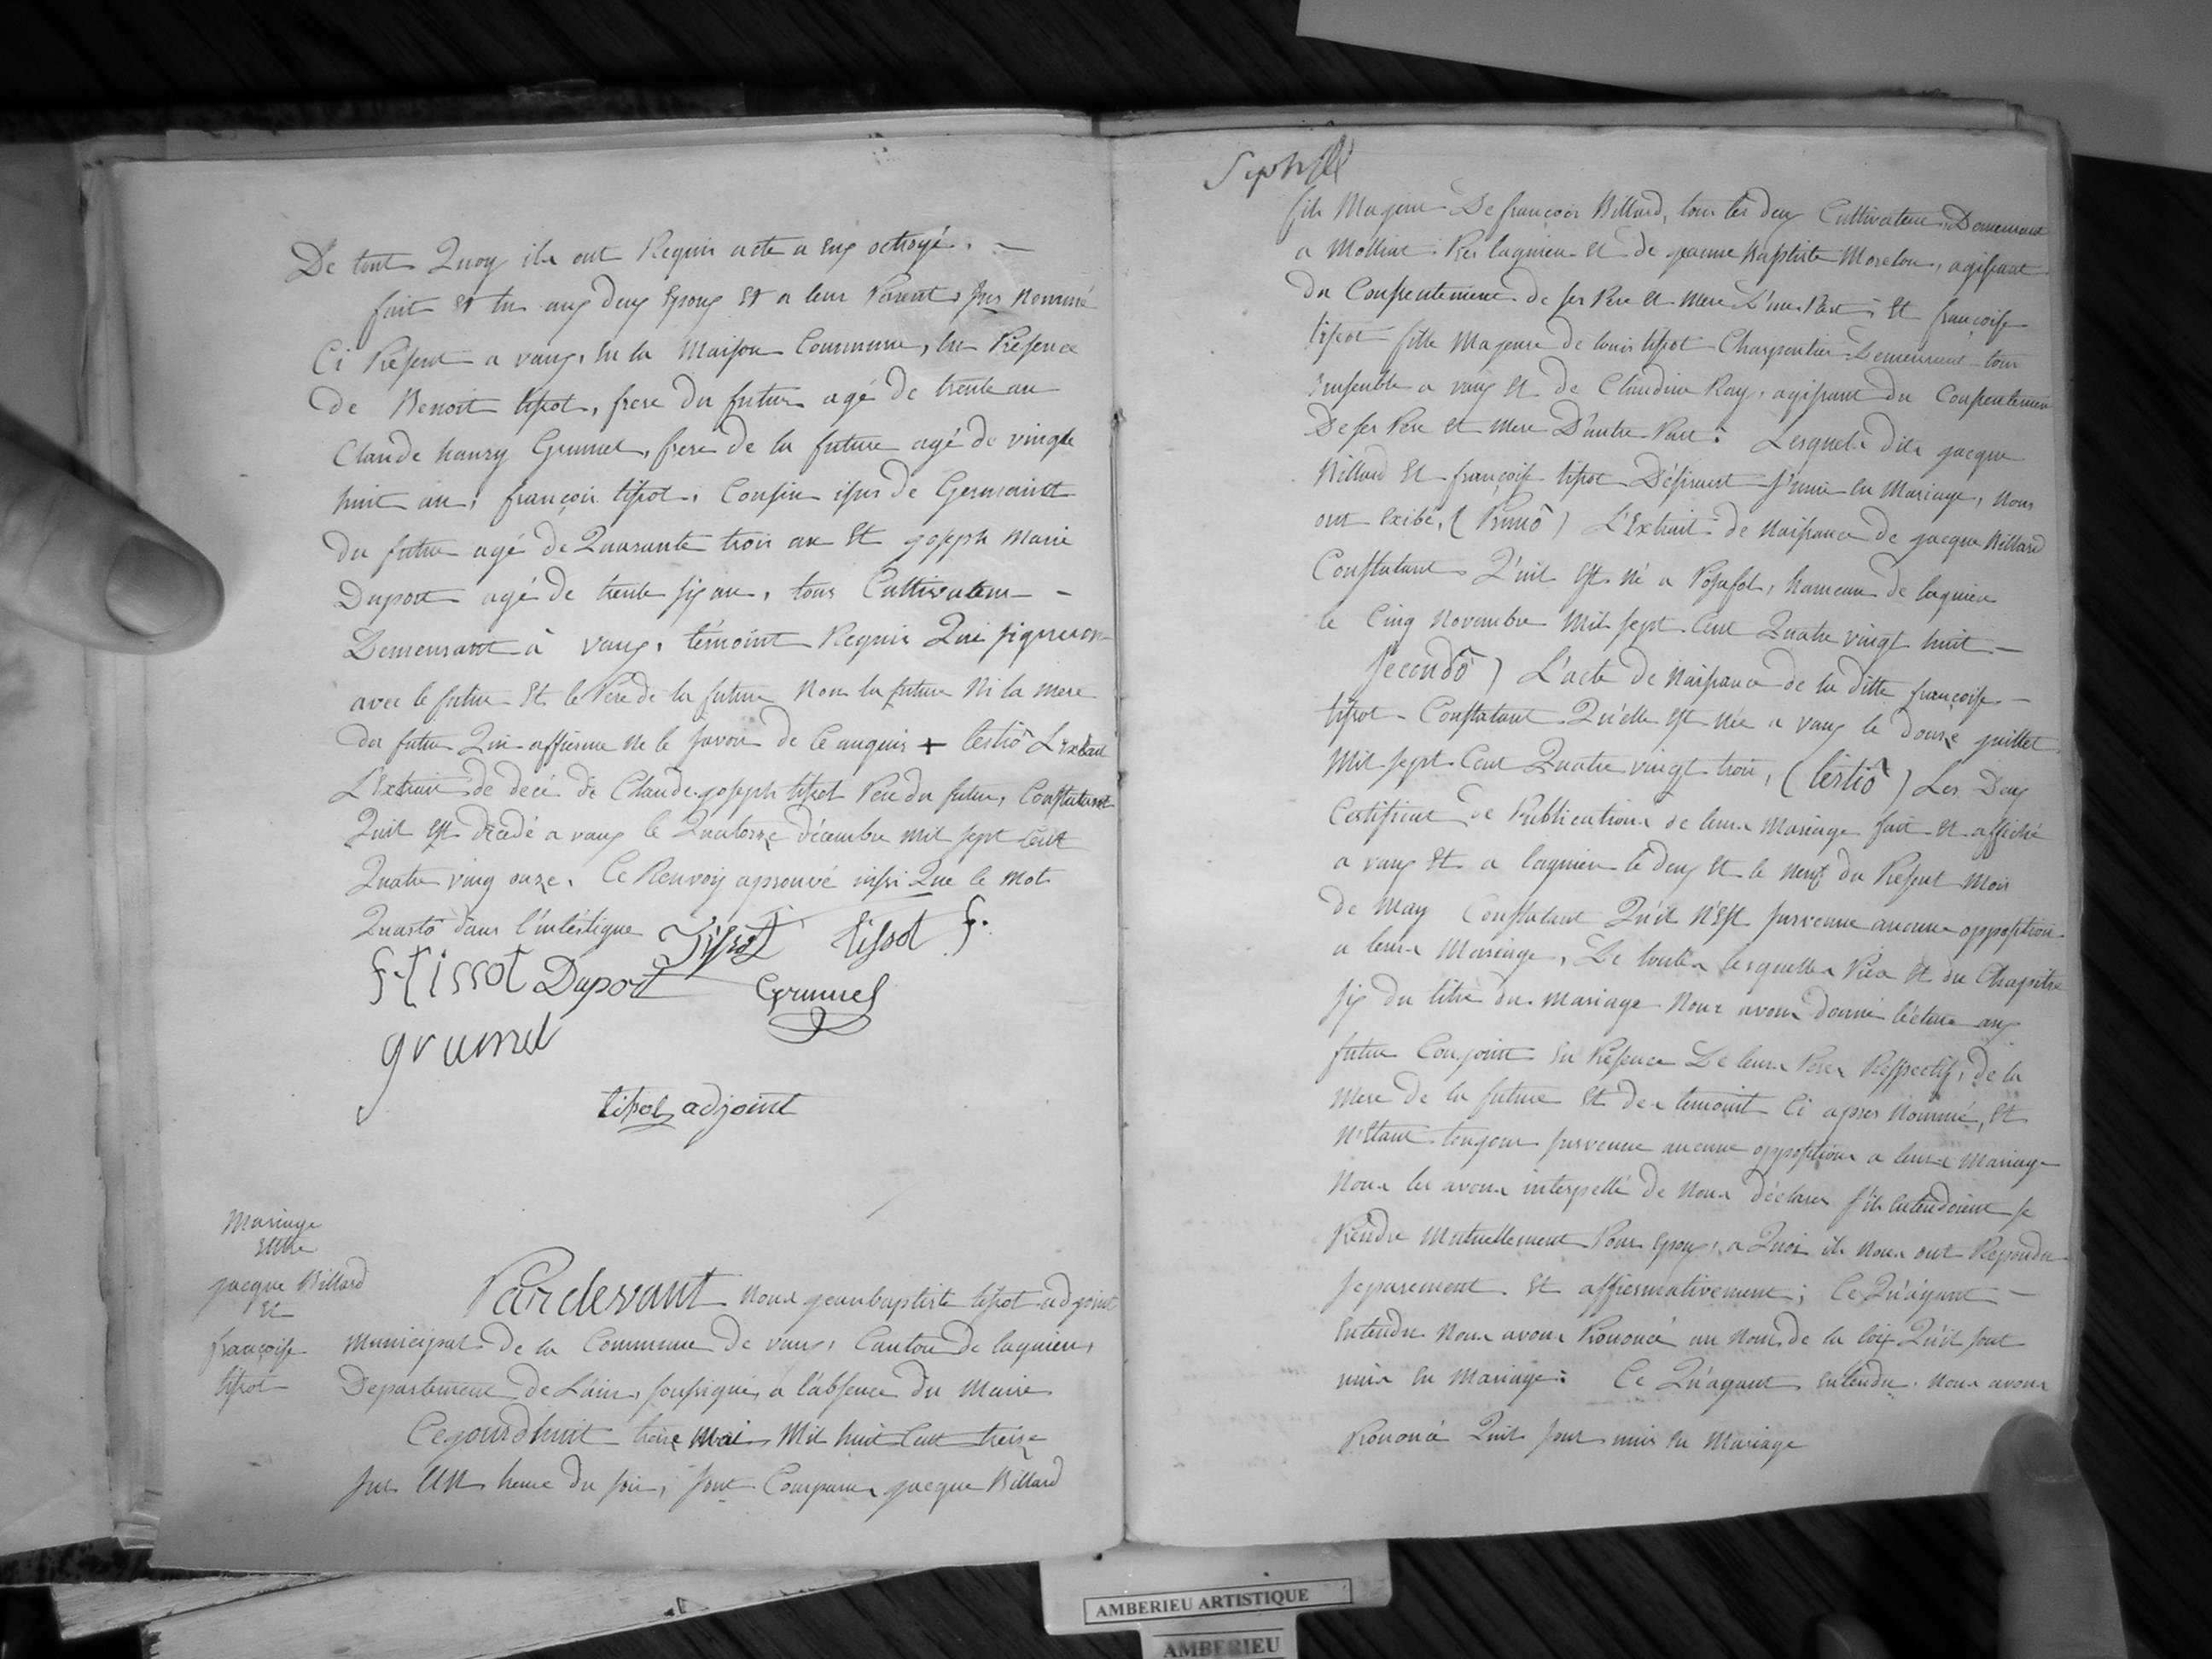 De tout Quoy ils ont Requis acte a eux octroyé. —
fait et lu aux deux Epoux et a leur Parent, sus Nommé
Ci Présent a vaux, en la Maison Commune, en Présence
de Benoit tissot, frere du futur agé de trente an
Claude hanry Grumet, frere de la future agé de vingte
huit an, françois tissot, Cousin issus de Germaint
du futur agé de Quarante trois an Et joseph Marie
Duport agé de trente six an, tous Cultivateur —
Demeurant à vaux, témoint Requis Qui signeron
avec le futur Et le Pere de la future Non la future Ni la mere
du futur Qui affierme Ne le savoir de Ce anquis + tertiô L'extrait
L'Extrait de decé de Claude joseph tissot Pere du futur, Constatant
Quil est décédé a vaux le Quatorze décembre mil sept Cent
Quatre ving onze. Ce Renvoij aprouvé insi Que le Mot
Quartô dans l'intéstigne
Tissot tissot f.
f tissot Duport Grumet
grumet
tissot adjoint
Mariage
Entre
jacque Billard
Et
françoise
tissot
Pardevant Nous jeanbaptiste tissot adjoint
Municipal de la Commune de vaux, Canton de lagnieu,
Departement de L'ain, soussigné, a l'absence du Maire
Cejourdhuit treize Mai Mil huit Cent treize
sur UN heure du soir, sont Comparus jacque Billard
fils Majeur De françois Billard, tous les deux Cultivateur, Demeurant
a Mollint Pres lagnieu Et de jeanne Baptiste Morelon, agissant
du Consentement de ses Pere et Mere D'une Part; Et françoise
tissot fille Majeure de louis tissot Charpentier Demeurant tous
Ensemble a vaux Et de Claudine Ray, agissant du Consentement
De ses Pere et mere D'autre Part: Lesquels dits jacque
Billard Et françoise tissot Désirant s'unir En Mariage, Nous
ont Exibé, (Primô) L'Extrait de Naissance de jacque Billard
Constatant Q'uil Est Né a Posafol, hameau de lagnieu
le Cinq Novembre Mil sept Cent Quatre vingt huit —
secondô) L'acte de Naissance de la ditte françoise —
tissot Constatant Qu'elle Est Née a vaux le douze juillet
Mil sept Cent Quatre vingt trois, (tertiô) Les Deux
Certificat de Publication de leurs Mariage fait Et affiché
a vaux Et a lagnieu le deux Et le Neuf du Présent Mois
de May Constatant Qu'il N'Est survenue aucune opposition
a leurs Mariage, De toutes lesquelles Pies Et du Chapitre
six du titre du mariage Nous avons donné lecture aux
futurs Conjoint En Présence De leurs Peres Respectifs, de la
Mere de la future Et des temoint Ci apres Nommé, Et
N'Etant toujour survenue aucune opposition a leurs Mariage
Nous les avons interpellé de Nous déclarer s'ils Entendoient se
Prendre Mutuellement Pour Epoux, a Quoi ils Nous ont Repondu
separement Et affiermativement; Ce Qu'ayant —
Entendu Nous avons Prononcé au Nom de la loix Qu'il sont
unis En Mariage: Ce Qu'ayant Entendu Nous avons
Prononcé Quil sont unis En Mariage
AMBERIEU ARTISTIQUE
AMBERIEU